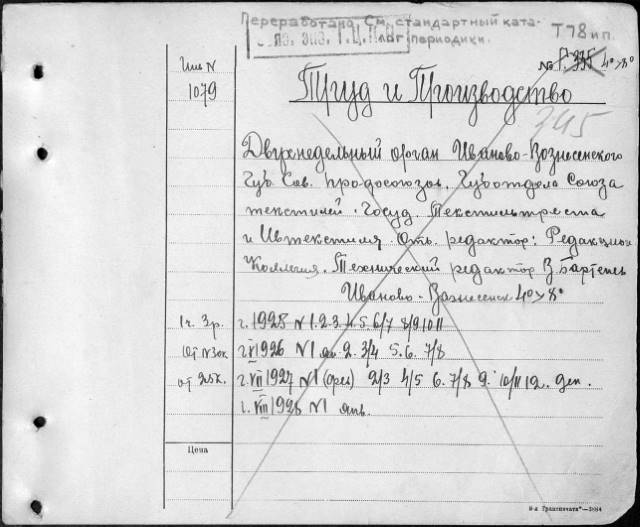 Переработано. См. стандартный ката-
лог периодики.
Т78ип.
№ 4° > 8°
Инв N
1079
Труд и Производство
345
Двухнедельный орган Иваново-Вознесенского
Губ. Сов. профсоюзов. Губотдела Союза
текстилей. Госуд. Текстильтреста
и Ивтекстиля. Отв. редактор: Редакцион
Коллегия. Технический редактор В. Бартень
Иваново-Вознесенск 4° > 8°
1 ч. 3 р. г. 1925 N 1. 2. 3. 4. 5. 6/7 8/9 10 11
От N 30к г VI 1926 N 1 янв. 2. 3/4 5. 6. 7/8
от 25к. г. VII 1927 N 1 (фев) 2/3 4/5 6. 7/8 9. 10/11 12. дек.
г. VIII 1928 N 1 янв.
Цена
8-я „Транспечати"—3984